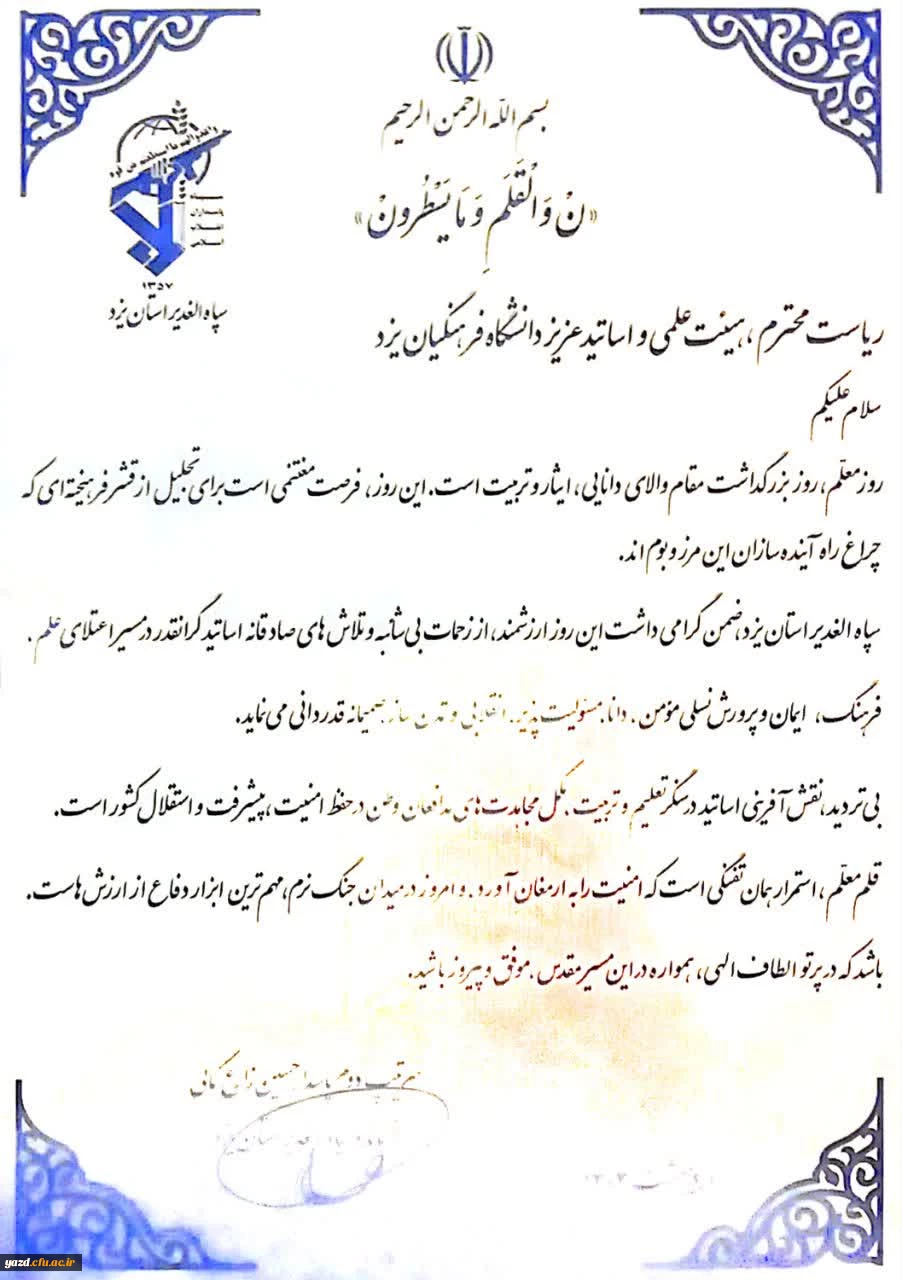 بسم الله الرحمن الرحیم
«نْ وَالْقَلَمِ وَ مَا یَسْطُرُونْ»
وَاَعِدّوا لَهُمْ مَا اسْتَطَعْتُمْ مِنْ قُوَّة
سپاه
پاسداران
انقلاب
اسلامی
۱۳۵۷
سپاه الغدیر استان یزد
ریاست محترم، هیئت علمی و اساتید عزیز دانشگاه فرهنگیان یزد
سلام علیکم
روز معلّم، روز بزرگداشت مقام والای دانایی، ایثار و تربیت است. این روز، فرصت مغتنمی است برای تجلیل از قشر فرهیخته‌ای که
چراغ راه آینده سازان این مرز و بوم اند.
سپاه الغدیر استان یزد، ضمن گرامی داشت این روز ارزشمند، از زحمات بی شائبه و تلاش های صادقانه اساتید گرانقدر در مسیر اعتلای علم،
فرهنگ، ایمان و پرورش نسلی مؤمن، دانا، مسئولیت پذیر، انقلابی و تمدن ساز صمیمانه قدردانی می نماید.
بی تردید، نقش آفرینی اساتید در سنگر تعلیم و تربیت، مکمل مجاهدت های مدافعان وطن در حفظ امنیت، پیشرفت و استقلال کشور است.
قلم معلّم، استمرار همان تفنگی است که امنیت را به ارمغان آورد، و امروز در میدان جنگ نرم، مهم ترین ابزار دفاع از ارزش هاست.
باشد که در پرتو الطاف الهی، همواره در این مسیر مقدس، موفق و پیروز باشید.
سرتیپ دوم پاسدار حسین زارع کمالی
yazd.cfu.ac.ir